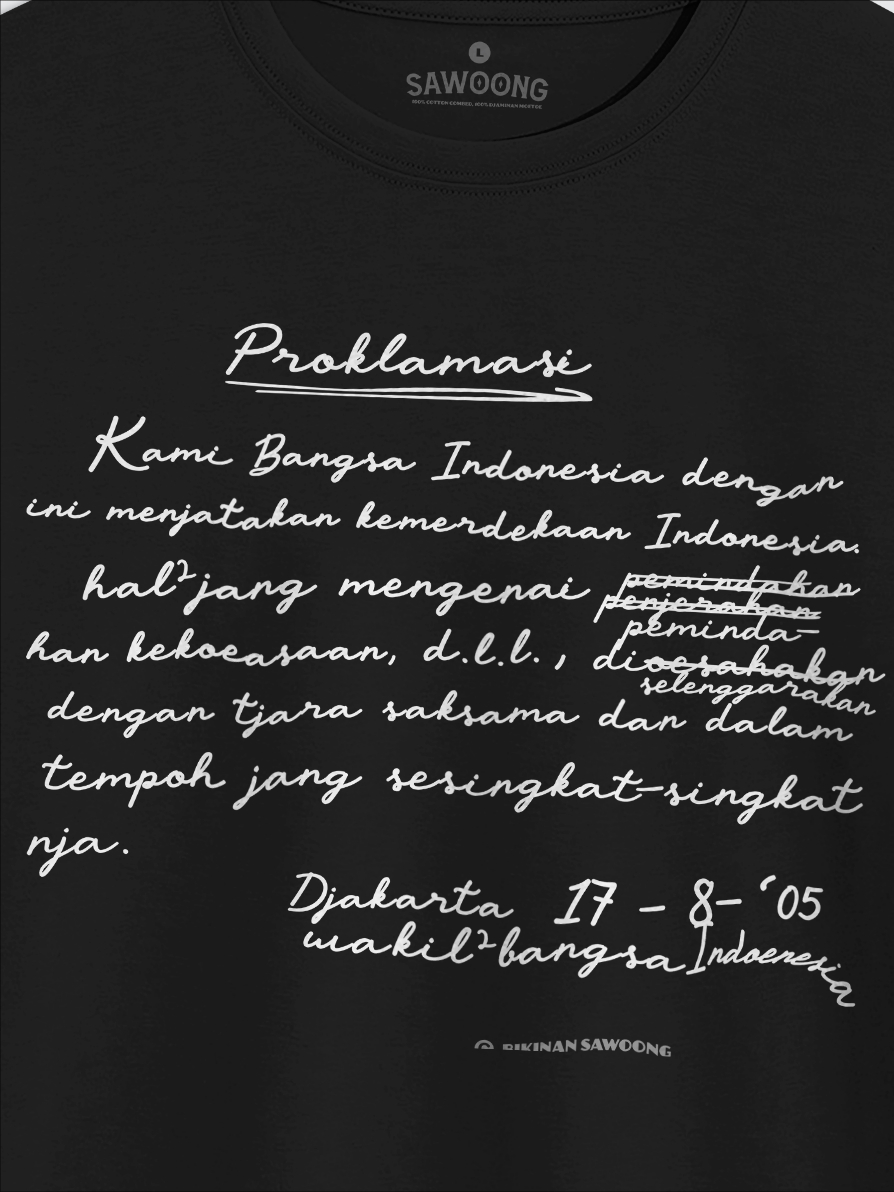 L
SAWOONG
100% COTTON COMBED, 100% DJAMINAN MOETOE
Proklamasi
Kami Bangsa Indonesia dengan
ini menjatakan kemerdekaan Indonesia.
hal² jang mengenai pemindahan
penjerahan
peminda-
han kekoeasaan, d.l.l., dioesahakan
selenggarakan
dengan tjara saksama dan dalam
tempoh jang sesingkat-singkat
nja.
Djakarta 17 - 8 - '05
wakil² bangsa Indoenesia
BIKINAN SAWOONG